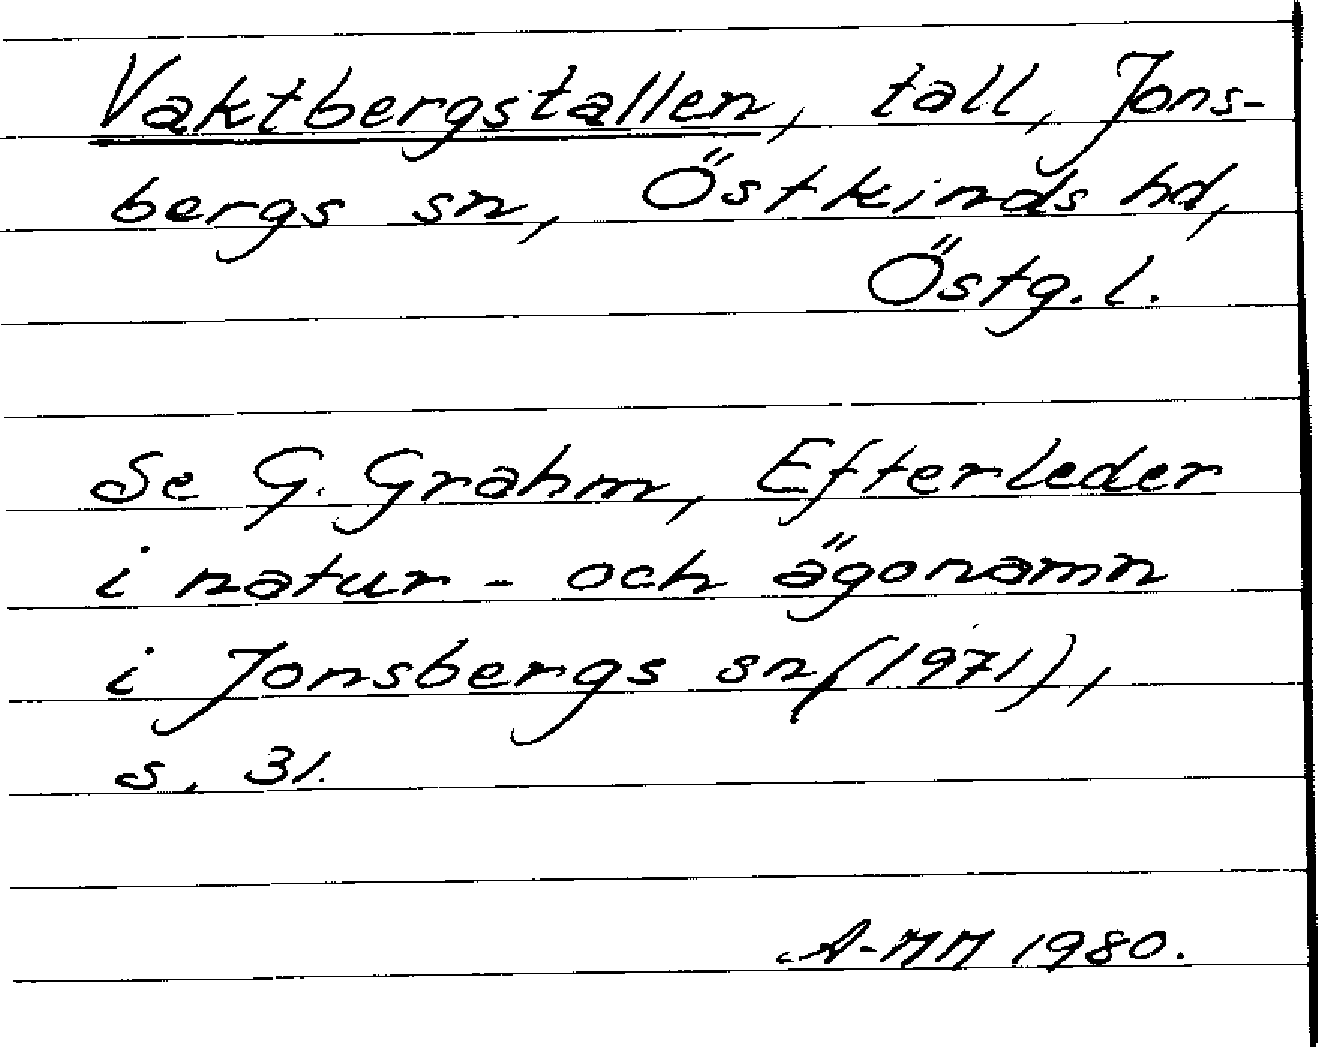 Vaktbergstallen, tall, Jons-
bergs sn, Östkinds hd,
Östg.l.
Se G. Grahm, Efterleder
i natur- och ägonamn
i Jonsbergs sn (1971),
s. 31.
A-MM 1980.